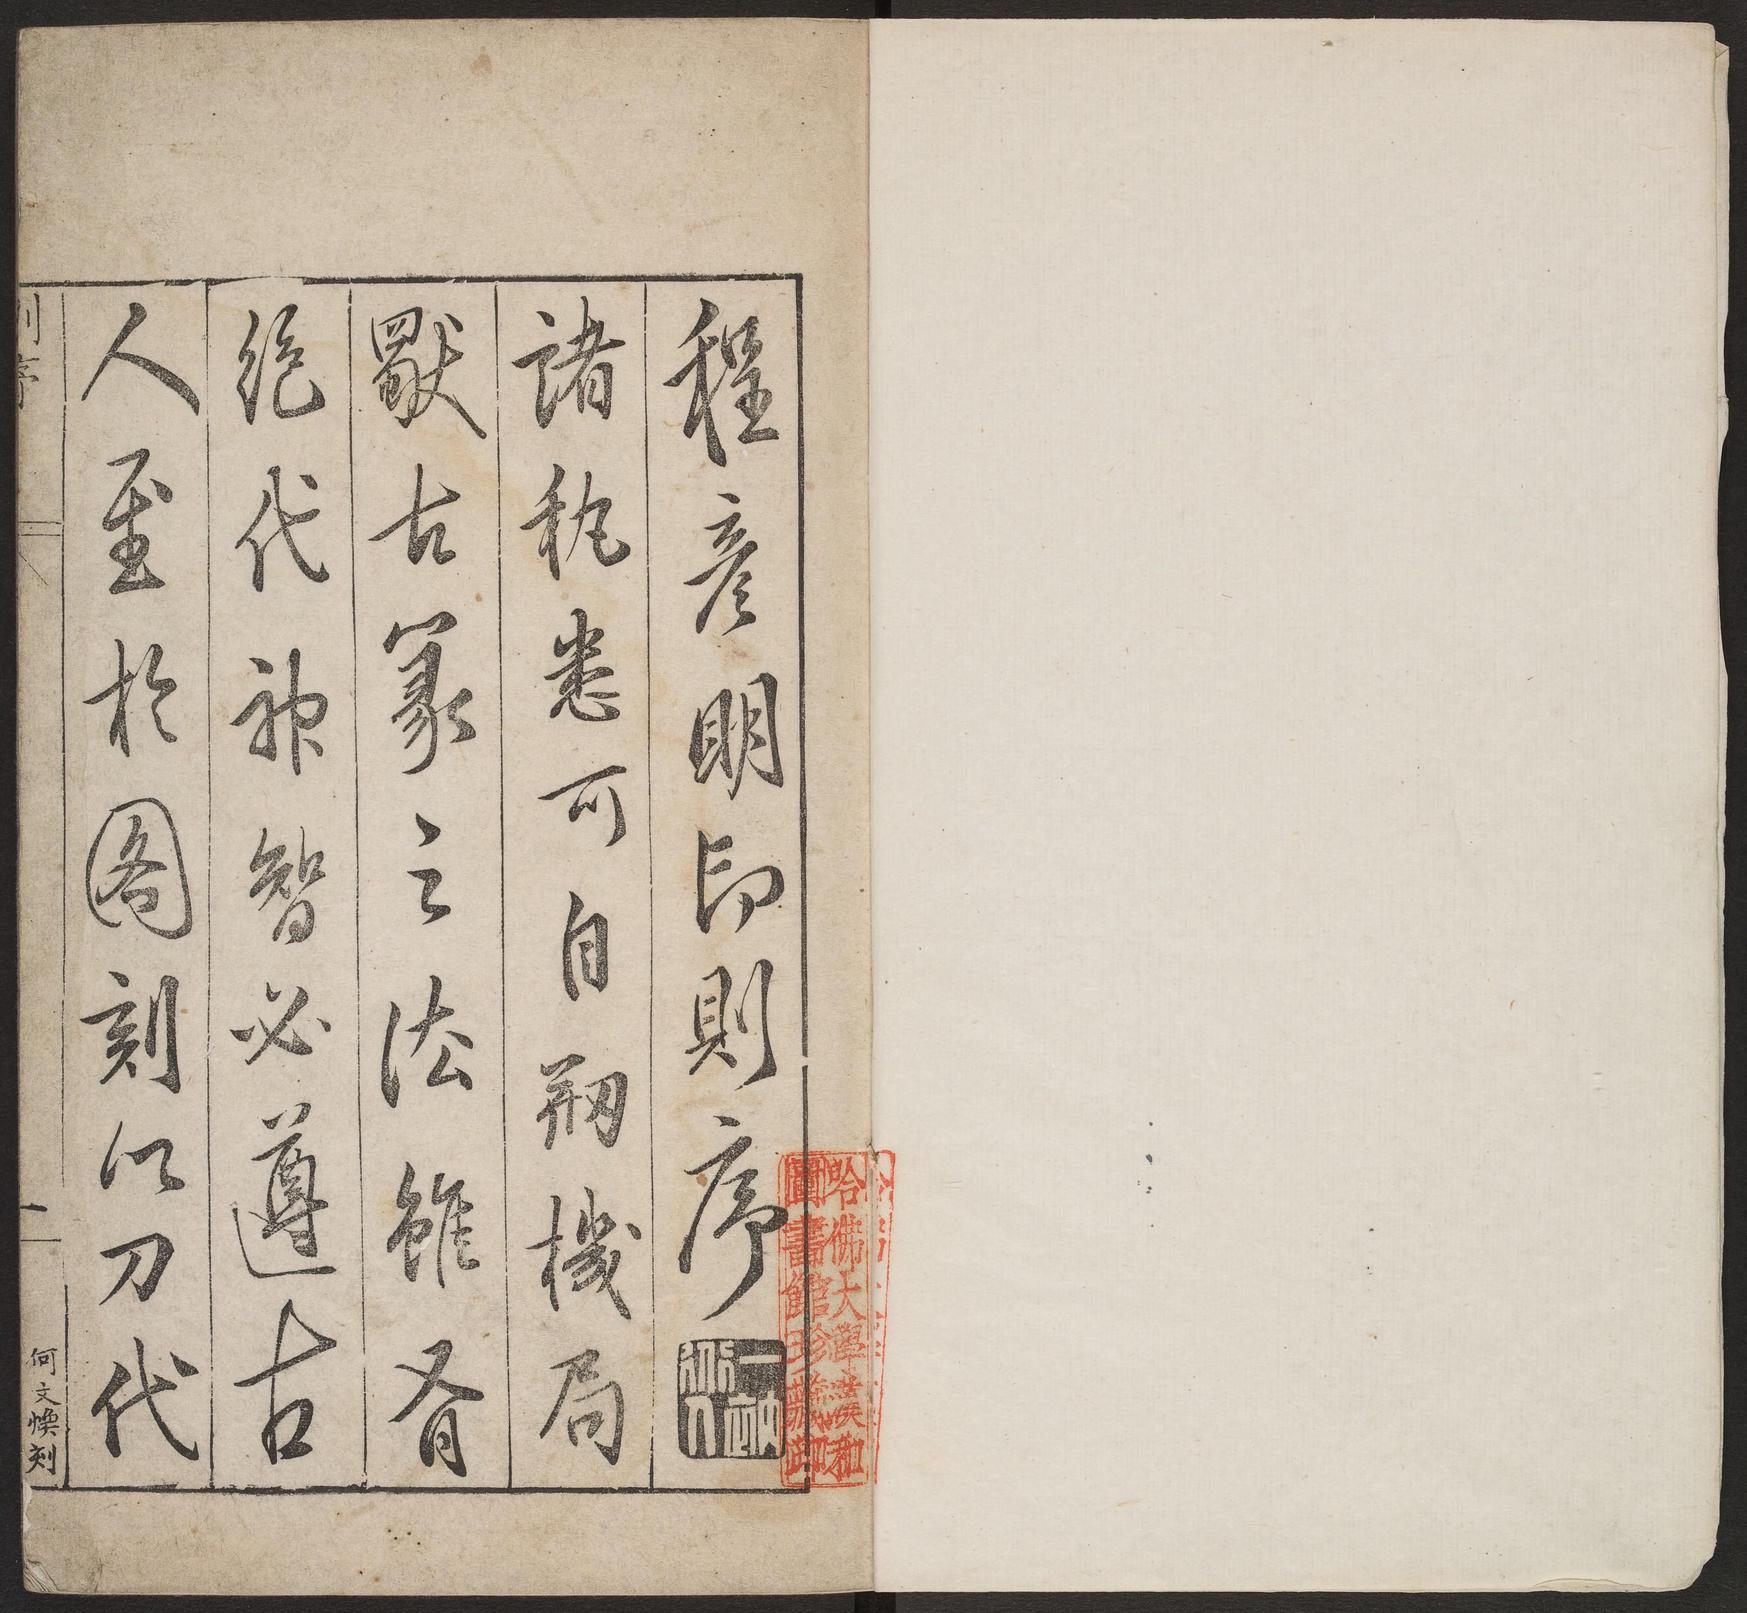 程彥明印則序
諸秇悉可自刱機局
獨古篆之法雖有
絕代神智必遵古
人至於圖刻以刀代
則序
一
何文煥刻
哈佛大學漢和
圖書館珍藏印